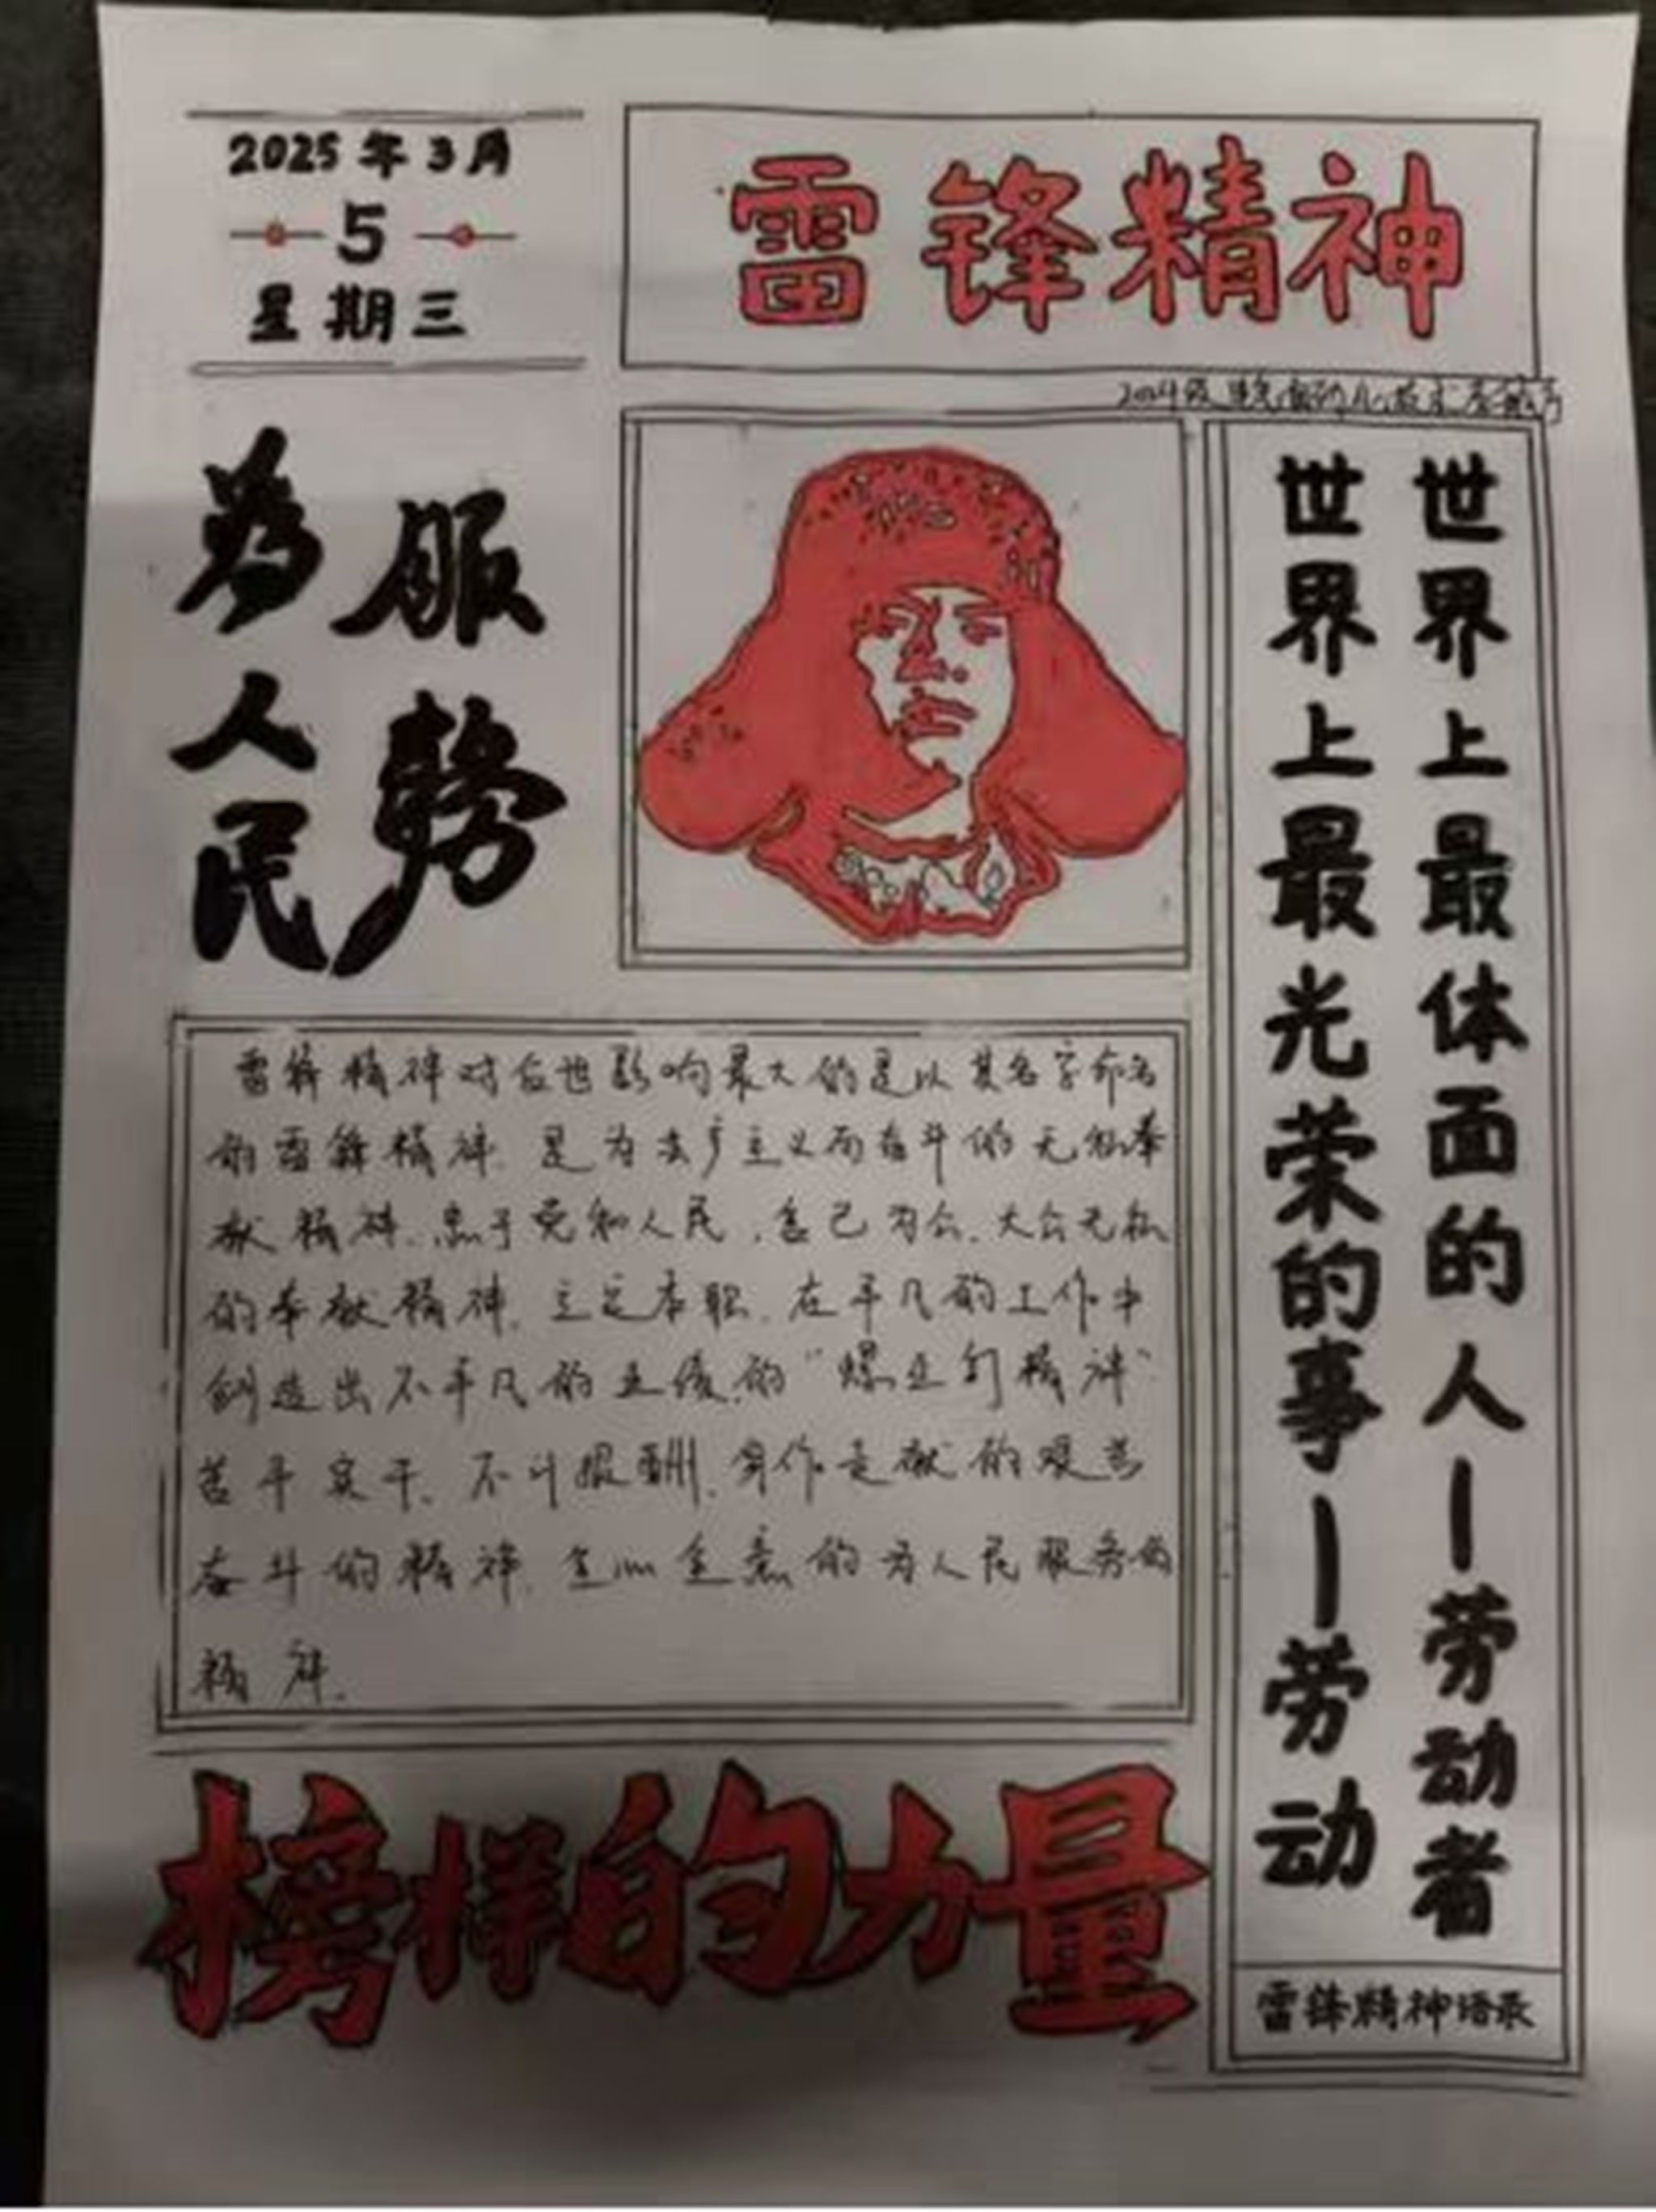 2025年3月
5
星期三
雷锋精神
2024级
为人民
服务
世界上最体面的人—劳动者
世界上最光荣的事—劳动
雷锋精神语录
雷锋精神对后世影响最大的是以其名字命名
的雷锋精神.是为共产主义而奋斗的无私奉
献精神.忠于党和人民,舍己为公.大公无私
的奉献精神.立足本职.在平凡的工作中
创造出不平凡的业绩的“螺丝钉精神”
苦干实干.不计报酬.争作贡献的艰苦
奋斗的精神.全心全意的为人民服务的
精神.
榜样的力量